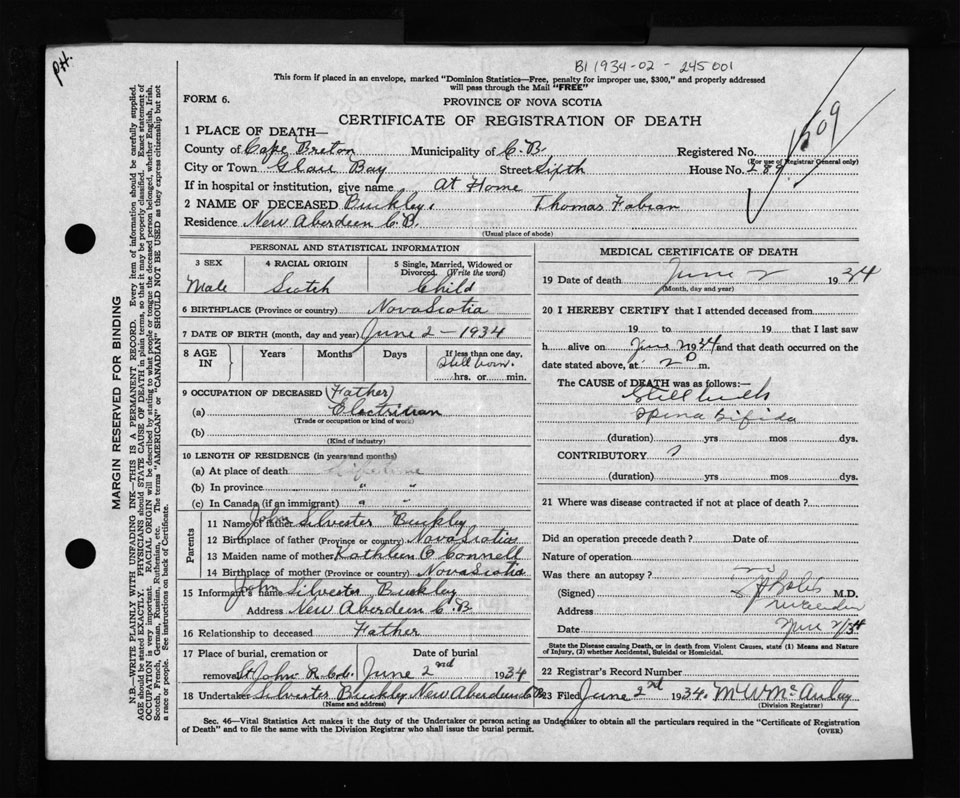 PH.
B1 1934-02-245001
This form if placed in an envelope, marked "Dominion Statistics—Free, penalty for improper use, $300," and properly addressed
will pass through the Mail "FREE"
FORM 6.
PROVINCE OF NOVA SCOTIA
CERTIFICATE OF REGISTRATION OF DEATH
1 PLACE OF DEATH—
1509
County of Cape Breton Municipality of C.B. Registered No.
(For use of Registrar General only)
City or Town Glace Bay Street Sixth House No. 189
If in hospital or institution, give name At Home
2 NAME OF DECEASED Buckley. Thomas Fabian
Residence New Aberdeen C.B.
(Usual place of abode)
PERSONAL AND STATISTICAL INFORMATION
3 SEX 4 RACIAL ORIGIN 5 Single, Married, Widowed or
Divorced. (Write the word)
Male Scotch Child
6 BIRTHPLACE (Province or country) Nova Scotia
7 DATE OF BIRTH (month, day and year) June 2 - 1934
8 AGE IN Years Months Days If less than one day,
Still born.
hrs. or min.
9 OCCUPATION OF DECEASED (Father)
(a) Electritian
(Trade or occupation or kind of work)
(b)
(Kind of industry)
10 LENGTH OF RESIDENCE (in years and months)
(a) At place of death Lifetime
(b) In province " "
(c) In Canada (if an immigrant) " "
Parents
11 Name of father John Silvester Buckley
12 Birthplace of father (Province or country) Nova Scotia
13 Maiden name of mother Kathleen O Connell
14 Birthplace of mother (Province or country) Nova Scotia
15 Informant's name John Silvester Buckley
Address New Aberdeen C.B
16 Relationship to deceased Father
17 Place of burial, cremation or Date of burial
removal St John R.C.C. June 2nd 1934
18 Undertaker Silvester Buckley New Aberdeen C.B.
(Name and address)
MEDICAL CERTIFICATE OF DEATH
19 Date of death June 2 1934
(Month, day and year)
20 I HEREBY CERTIFY that I attended deceased from
19 to 19 that I last saw
h alive on June 2 1934 and that death occurred on the
date stated above, at 2 m.
The CAUSE of DEATH was as follows:—
Still birth
Spina Bifida
(duration) yrs mos dys.
CONTRIBUTORY
(duration) yrs mos dys.
21 Where was disease contracted if not at place of death?
Did an operation precede death? Date of
Nature of operation
Was there an autopsy? no
(Signed) M.D.
Address
Date June 2/34
State the Disease causing Death, or in death from Violent Causes, state (1) Means and Nature
of Injury, (2) whether Accidental, Suicidal or Homicidal.
22 Registrar's Record Number
23 Filed June 2nd 1934.
(Division Registrar)
Sec. 46—Vital Statistics Act makes it the duty of the Undertaker or person acting as Undertaker to obtain all the particulars required in the "Certificate of Registration
of Death" and to file the same with the Division Registrar who shall issue the burial permit.
(OVER)
MARGIN RESERVED FOR BINDING
N.B.—WRITE PLAINLY WITH UNFADING INK—THIS IS A PERMANENT RECORD. Every item of information should be carefully supplied.
AGE should be stated EXACTLY. PHYSICIANS should STATE CAUSE OF DEATH in plain terms, so that it may be properly classified. Exact statement of
OCCUPATION is very important. RACIAL ORIGIN will be described by stating to what people or tongue the deceased person belonged, whether English, Irish,
Scotch, French, German, Russian, Ruthenian, etc. The terms "AMERICAN" or "CANADIAN" SHOULD NOT BE USED as they express citizenship but not
a race or people. See instructions on back of Certificate.